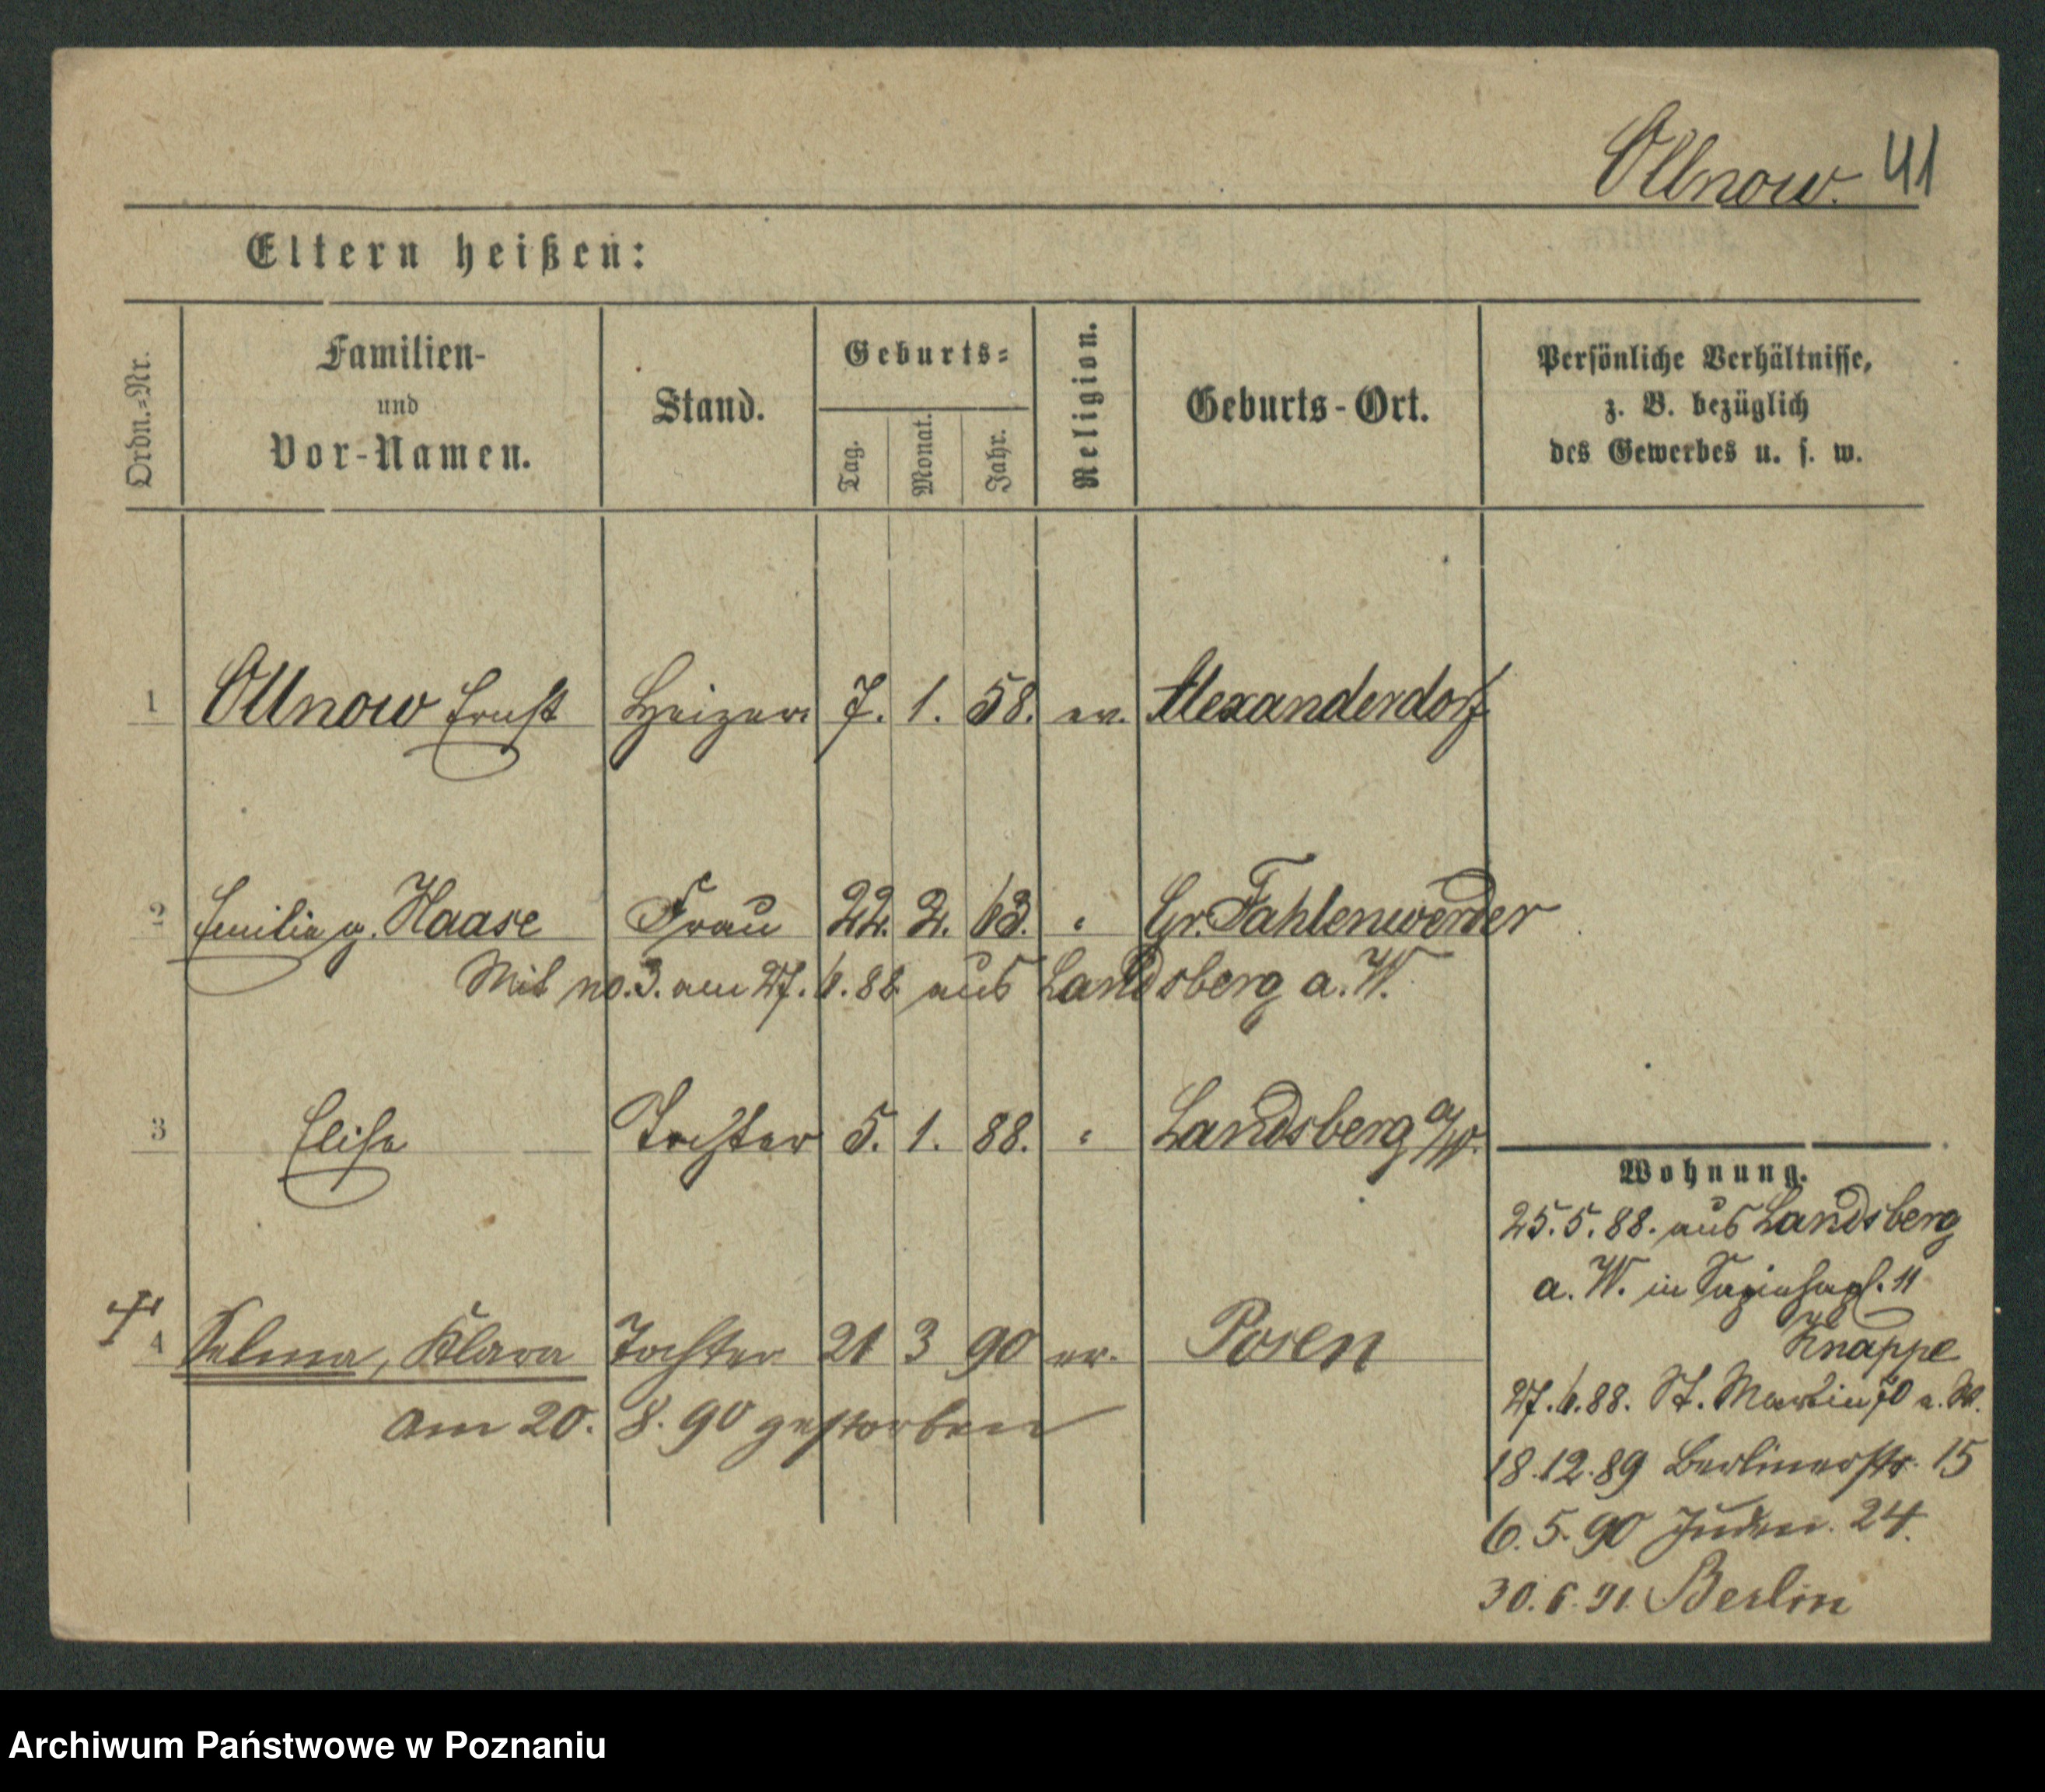 Ollnow. 41
Eltern heißen:
Ordn.=Nr.
Familien-
und
Vor-Namen.
Stand.
Geburts=
Tag.
Monat.
Jahr.
Religion.
Geburts-Ort.
Persönliche Verhältnisse,
z. B. bezüglich
des Gewerbes u. s. w.
1 Ollnow Ernst Heizer 7. 1. 58. ev. Alexanderdorf
2 Emilie g. Haase Frau 22. 2. 63. " Gr. Fahlenwerder
Mit no. 3. am 27. 6. 88 aus Landsberg a. W.
3 Elise Tochter 5. 1. 88. " Landsberg a/W.
4 Selma, Klara Tochter 21 3 90 ev. Posen
am 20. 8. 90 gestorben
Wohnung.
25. 5. 88. aus Landsberg
a. W. in 11
Knappe
27. 6. 88. St. Martin
18. 12. 89 Berlinerstr. 15
6. 5. 90 Juden. 24.
30. 6. 91. Berlin
Archiwum Państwowe w Poznaniu